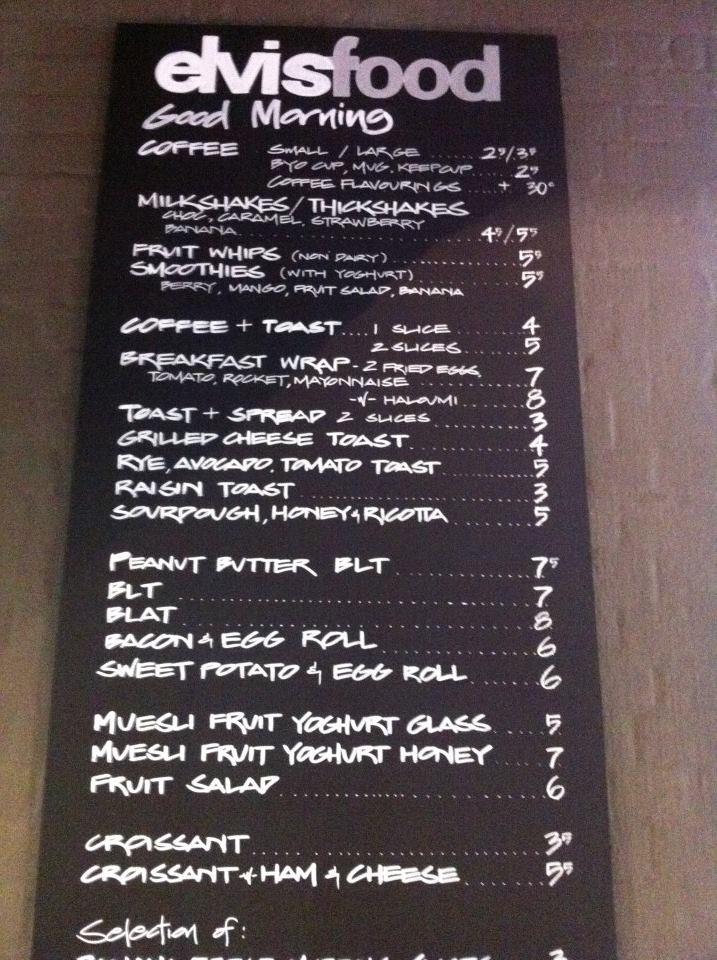 elvisfood
Good Morning
COFFEE SMALL / LARGE ...... 2⁵/3⁵
BYO CUP, MUG, KEEPCUP ..... 2⁵
COFFEE FLAVOURINGS .... + 30ᶜ
MILKSHAKES/THICKSHAKES
CHOC, CARAMEL, STRAWBERRY
BANANA .......... 4⁵/5⁵
FRUIT WHIPS (NON DAIRY) .......... 5⁵
SMOOTHIES (WITH YOGHURT) .......... 5⁵
BERRY, MANGO, FRUIT SALAD, BANANA
COFFEE + TOAST.... 1 SLICE ....... 4
2 SLICES ....... 5
BREAKFAST WRAP - 2 FRIED EGGS,
TOMATO, ROCKET, MAYONNAISE .......... 7
-W- HALOUMI ....... 8
TOAST + SPREAD 2 SLICES .......... 3
GRILLED CHEESE TOAST .......... 4
RYE, AVOCADO, TOMATO TOAST .......... 5
RAISIN TOAST .......... 3
SOURDOUGH, HONEY & RICOTTA .......... 5
PEANUT BUTTER BLT .......... 7⁵
BLT .......... 7
BLAT .......... 8
BACON & EGG ROLL .......... 6
SWEET POTATO & EGG ROLL ....... 6
MUESLI FRUIT YOGHURT GLASS ..... 5
MUESLI FRUIT YOGHURT HONEY .... 7
FRUIT SALAD .......... 6
CROISSANT .......... 3⁵
CROISSANT -W- HAM & CHEESE ....... 5⁵
Selection of: